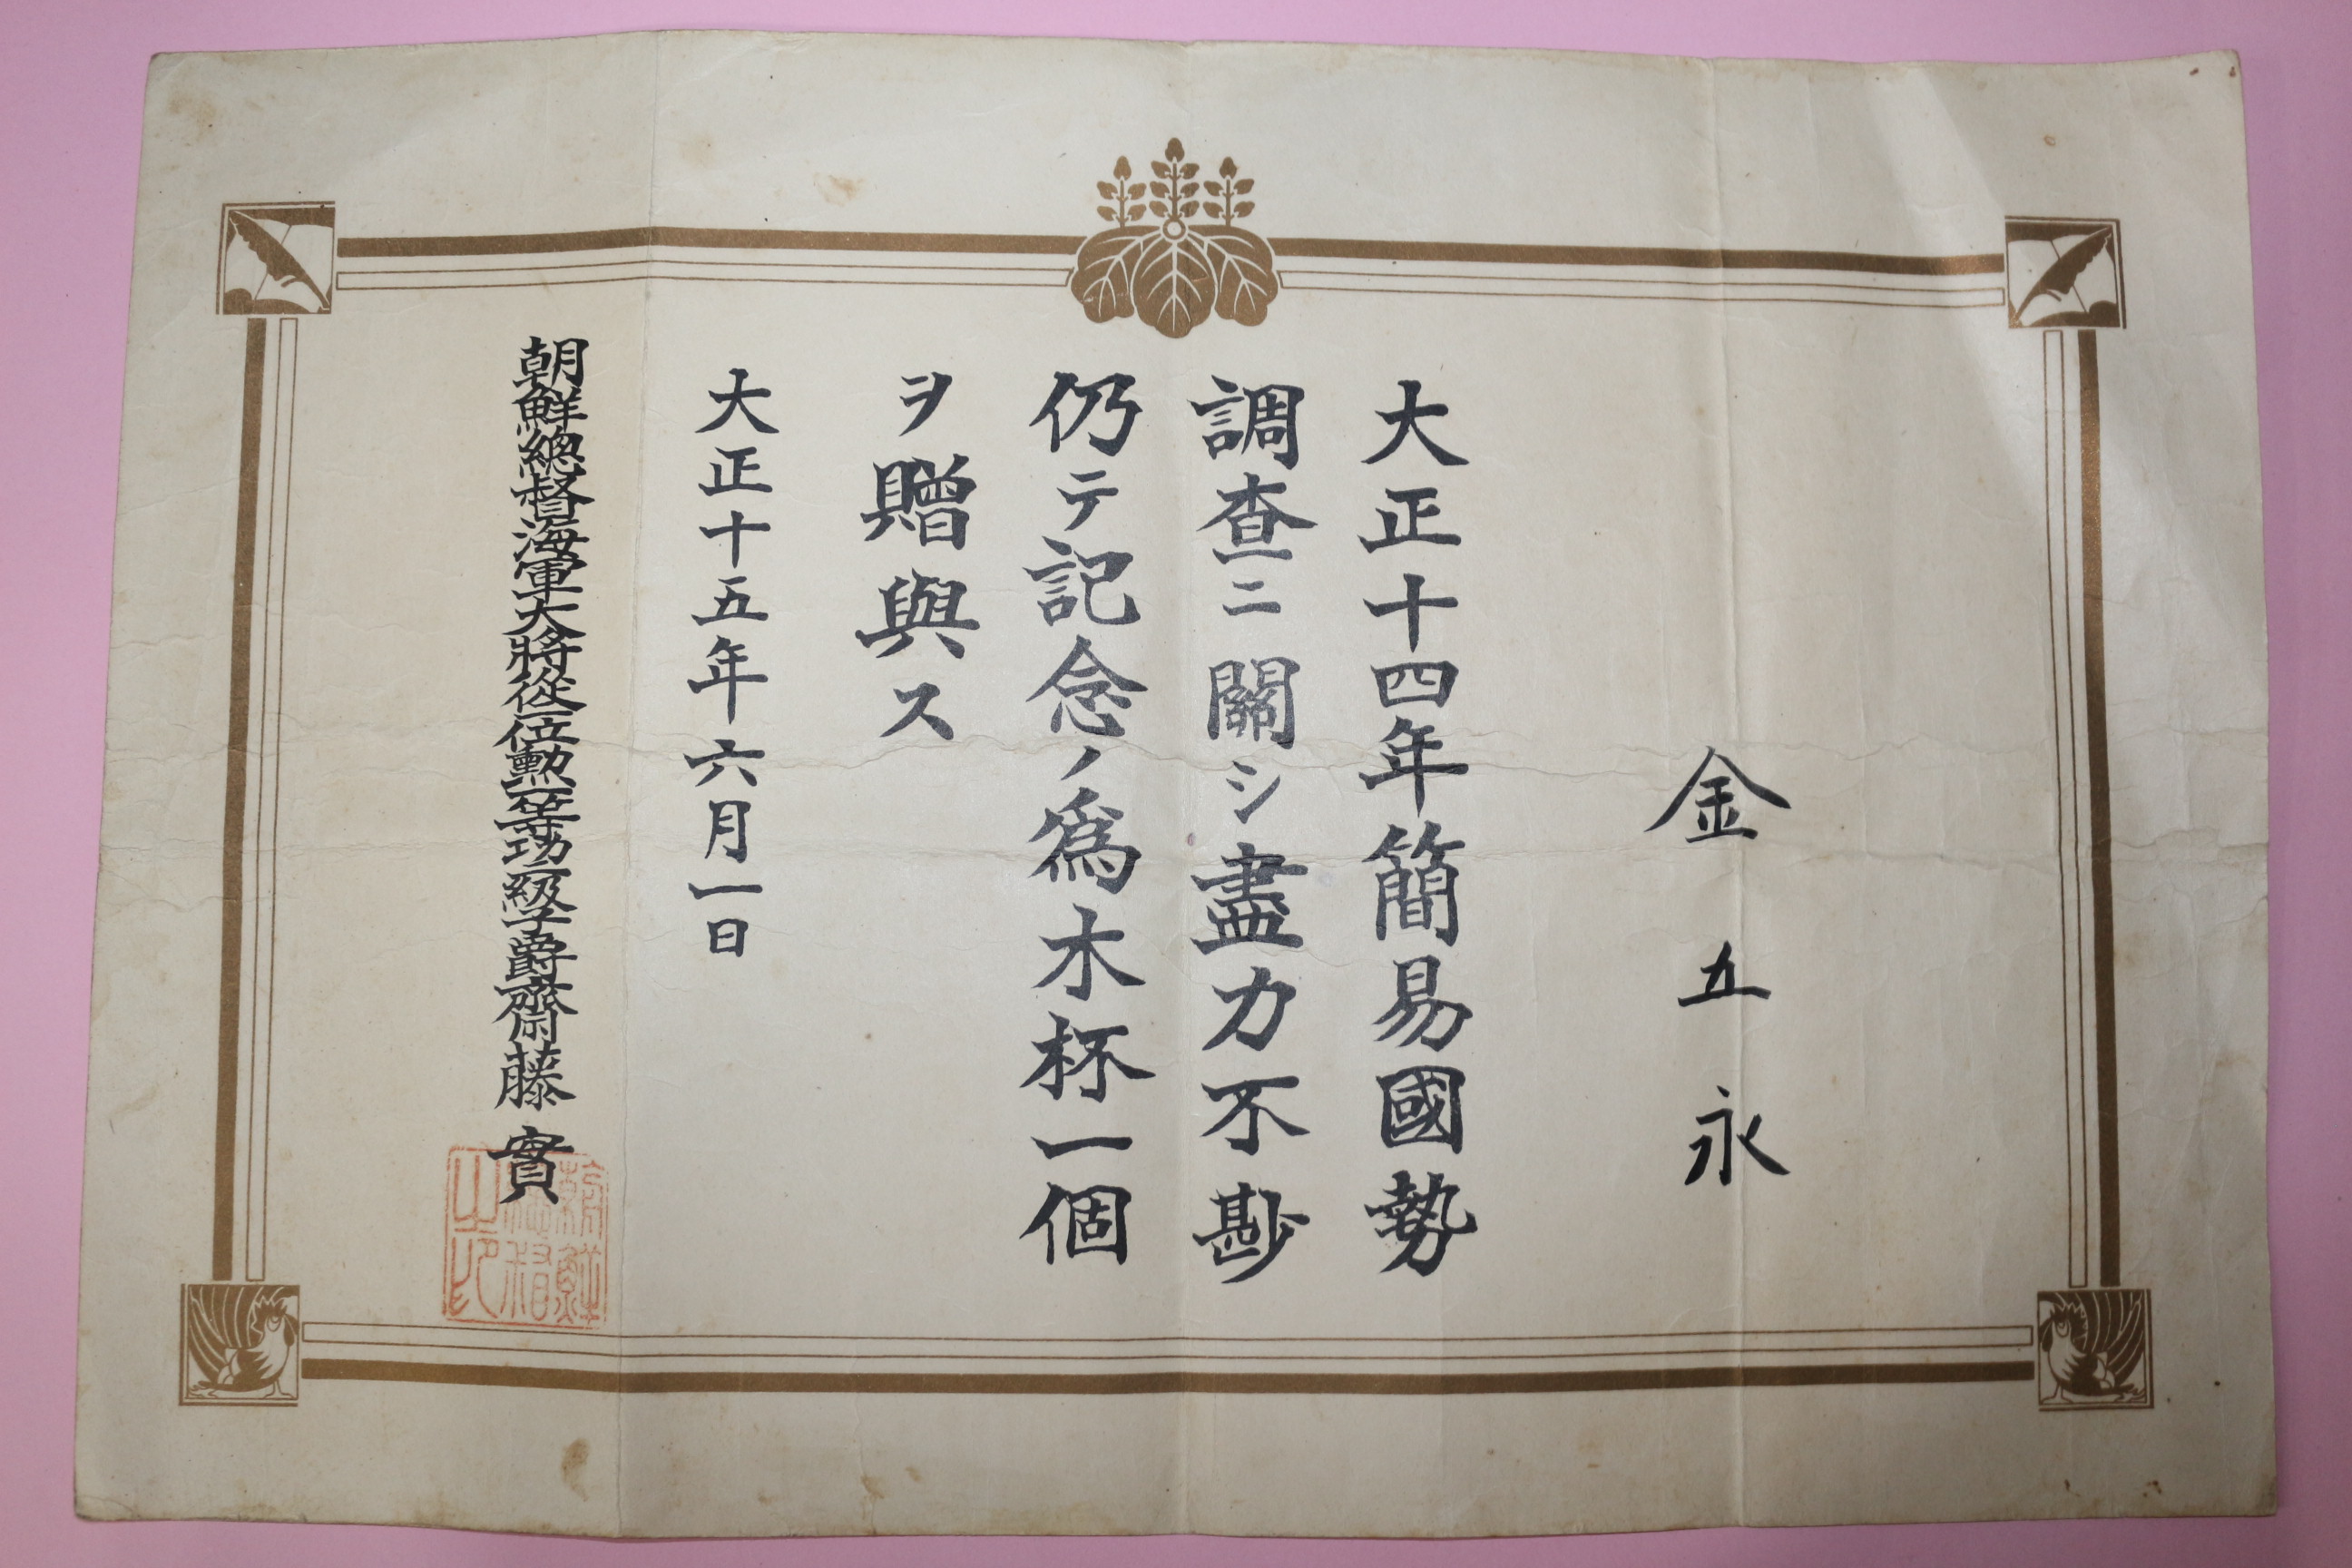 金五永
大正十四年簡易國勢
調査ニ關シ盡力不尠
仍テ記念ノ爲木杯一個
ヲ贈與ス
大正十五年六月一日
朝鮮總督海軍大將從二位勳一等功二級子爵齋藤實
朝鮮總督之印